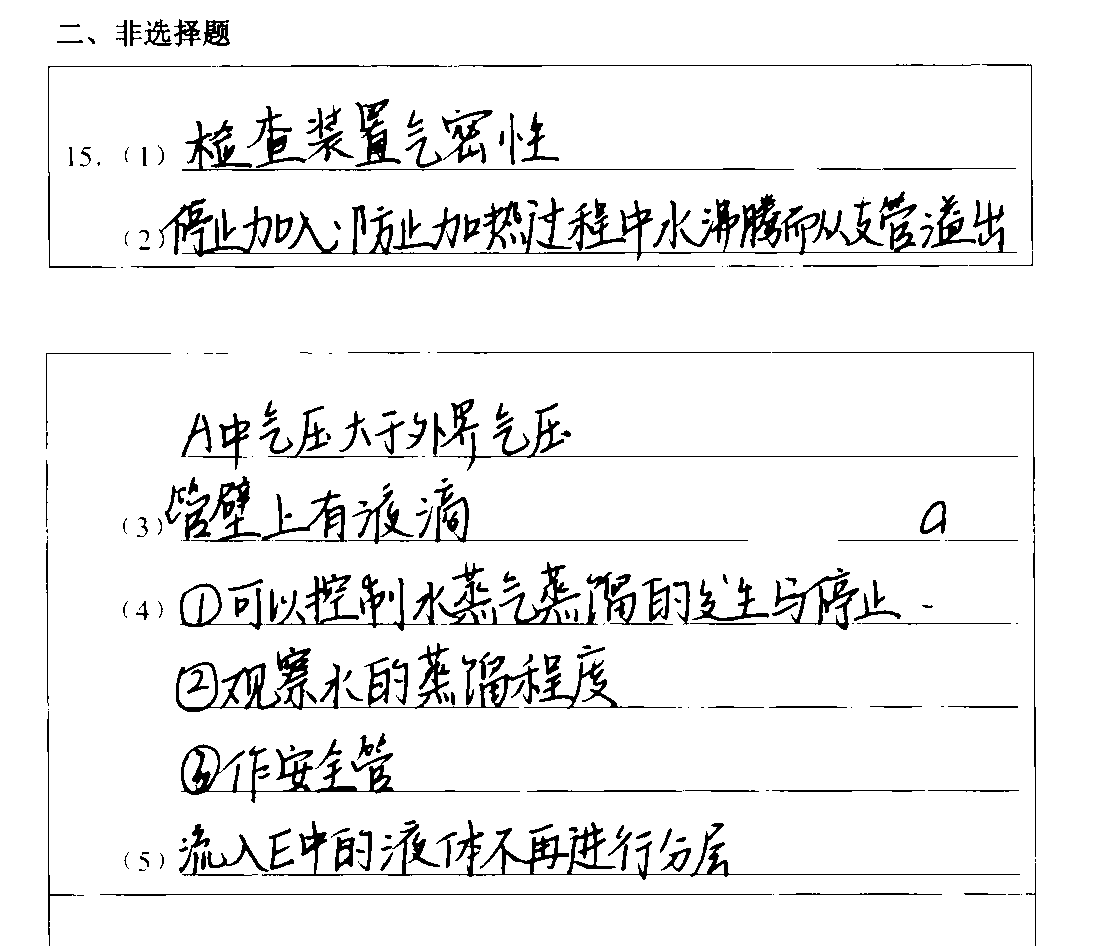 二、非选择题
15.（1）检查装置气密性
（2）停止加入；防止加热过程中水沸腾而从支管溢出
A中气压大于外界气压
（3）管壁上有液滴 a
（4）①可以控制水蒸气蒸馏的发生与停止
②观察水的蒸馏程度
③作安全管
（5）流入E中的液体不再进行分层